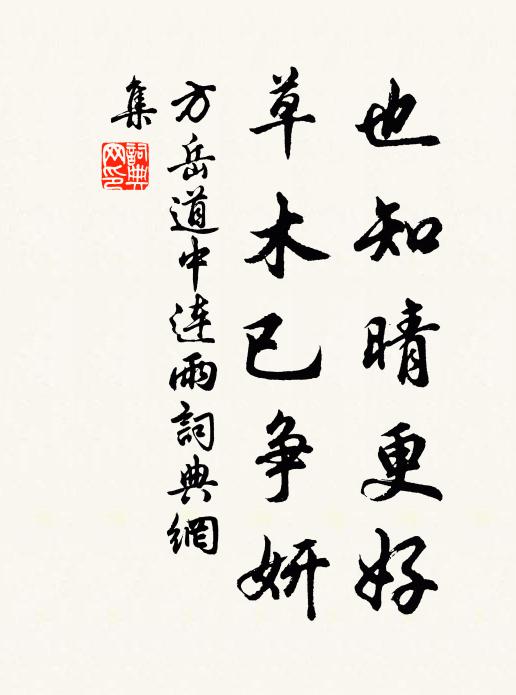 也知晴更好
草木已争妍
方岳道中連雨詞典網
集
詞典
网印